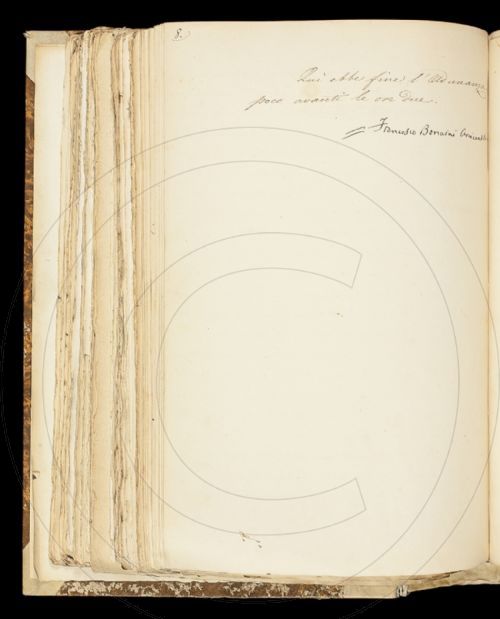 8.
Qui ebbe fine l'Adunanza
poco avanti le ore due.
Francesco Bonaini